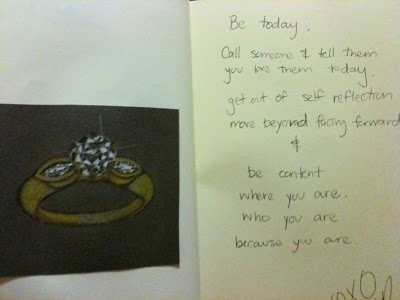 Be today.
Call someone & tell them
you love them today.
get out of self reflection
move beyond facing forward
&
be content
where you are.
who you are
because you are.